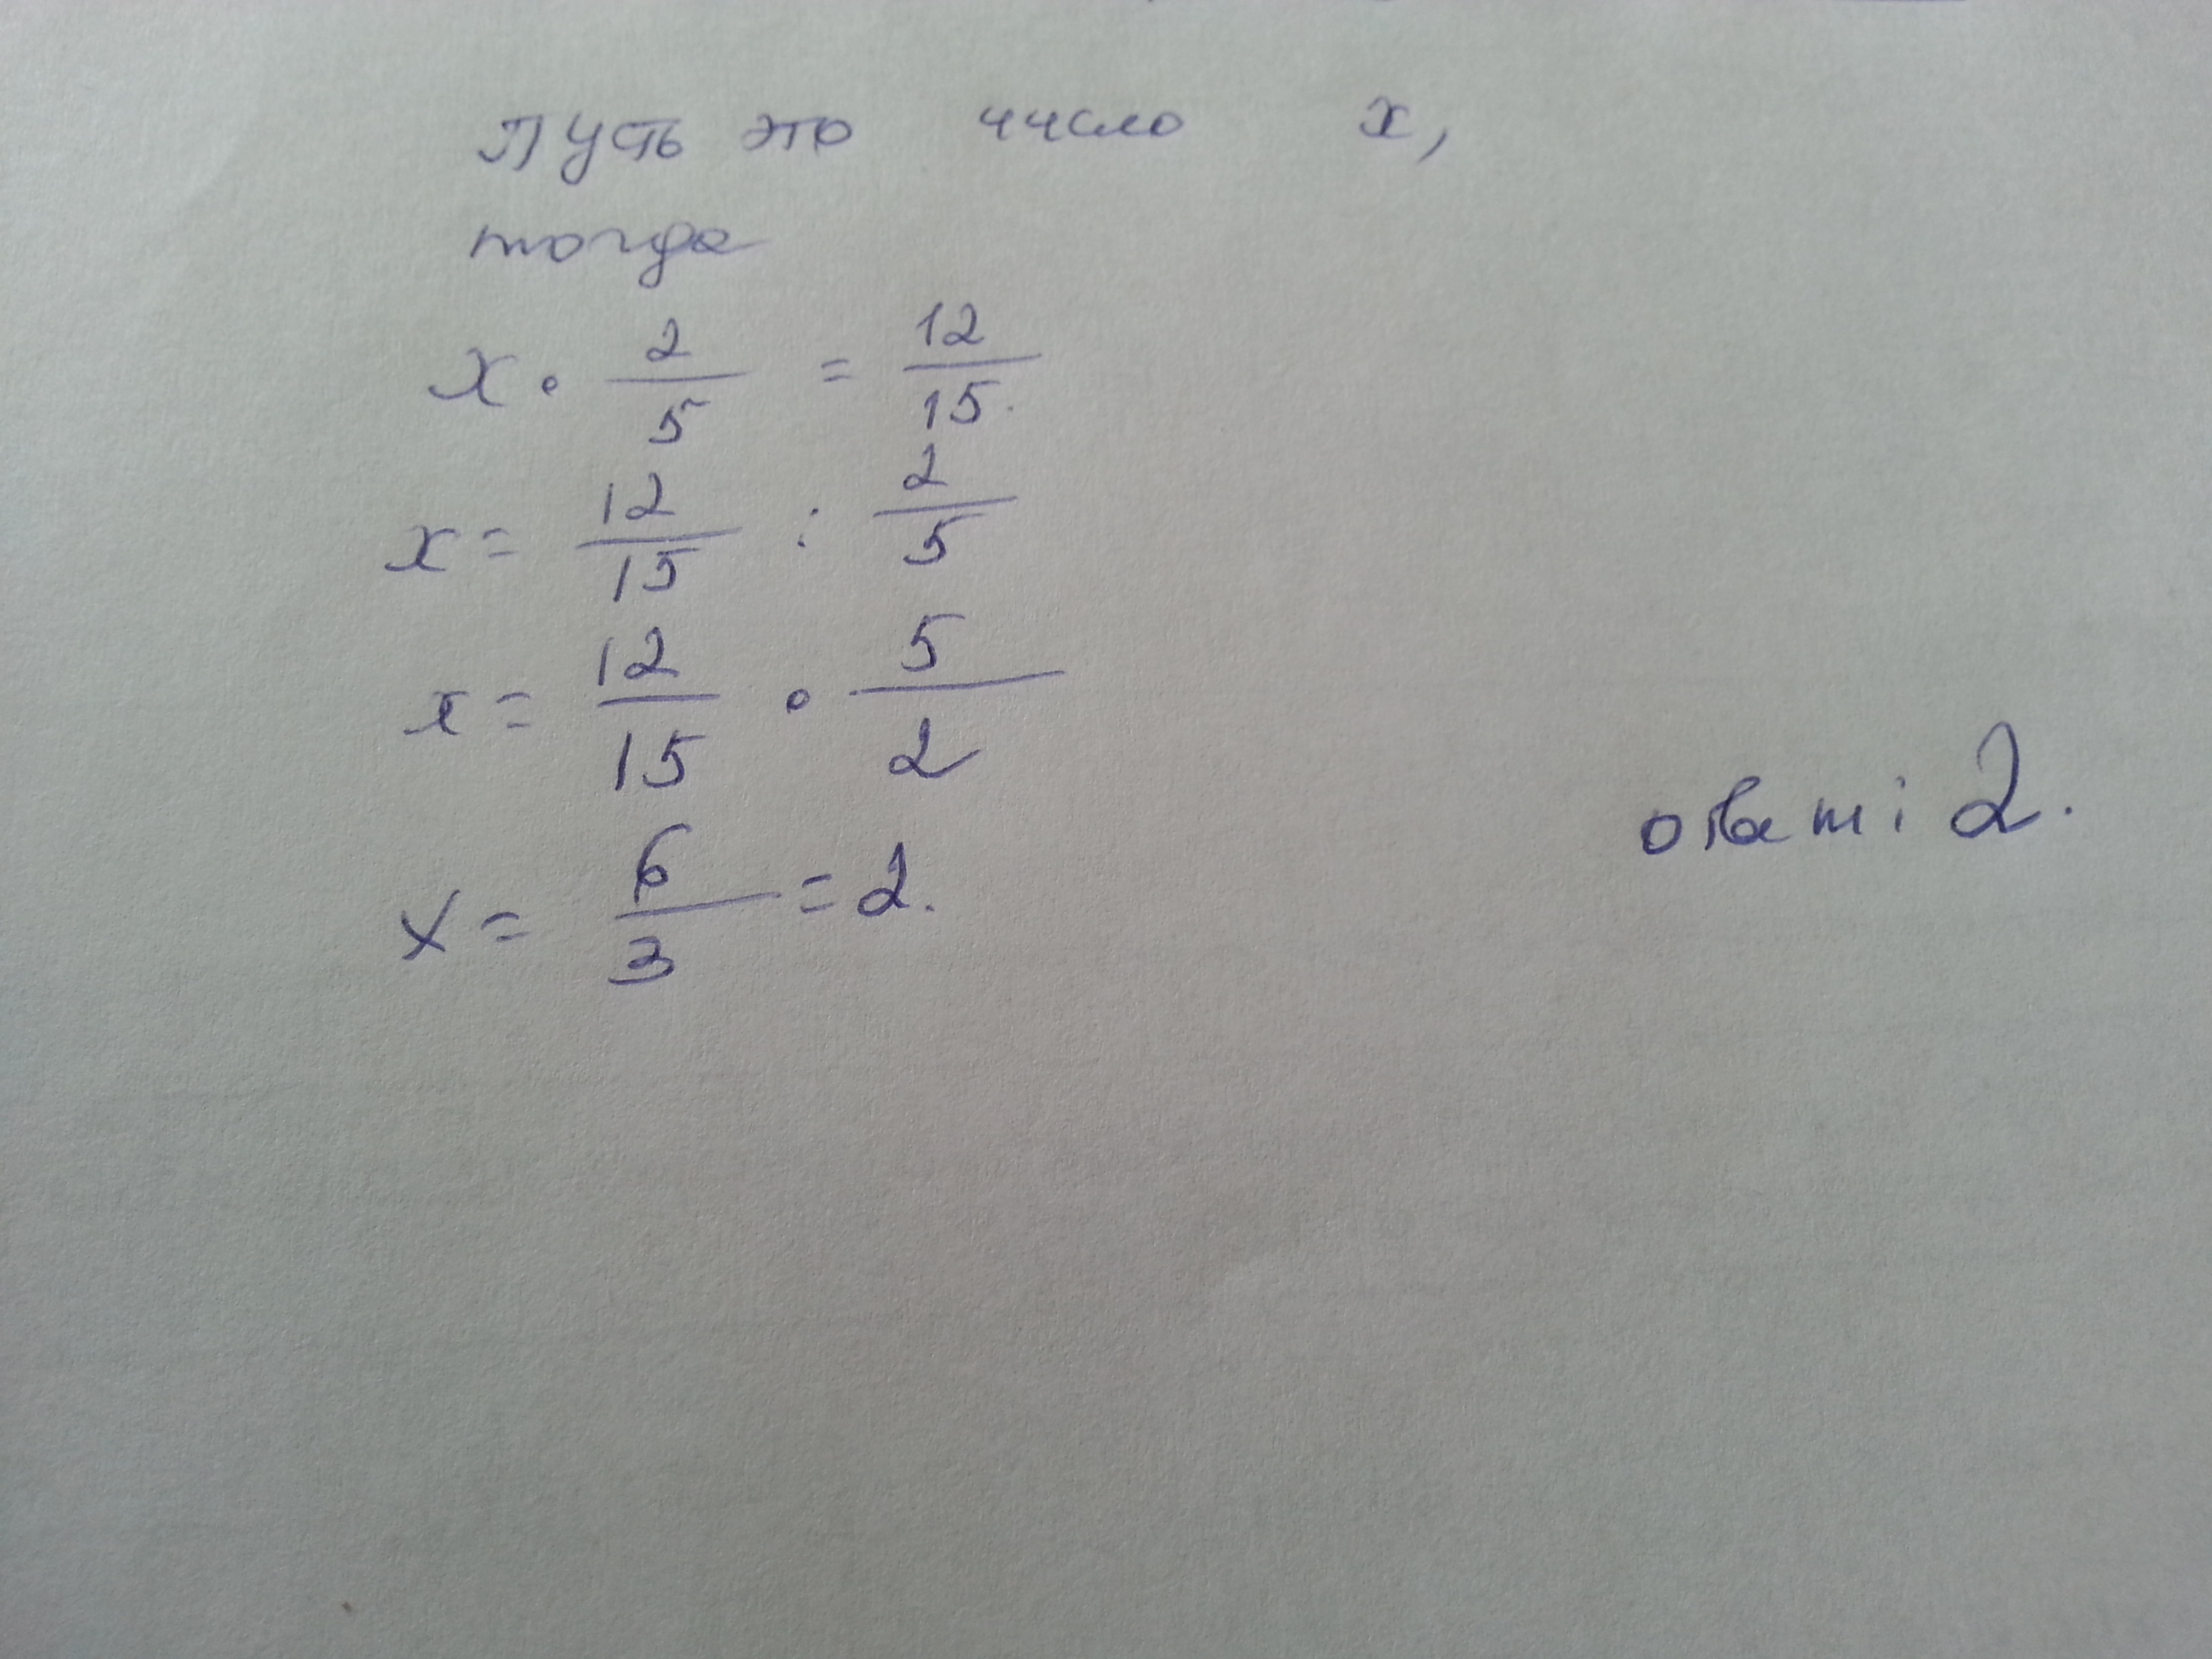 Пусть это число x,
тогда
x · 2/5 = 12/15.
x = 12/15 : 2/5
x = 12/15 · 5/2
x = 6/3 = 2.
ответ: 2.